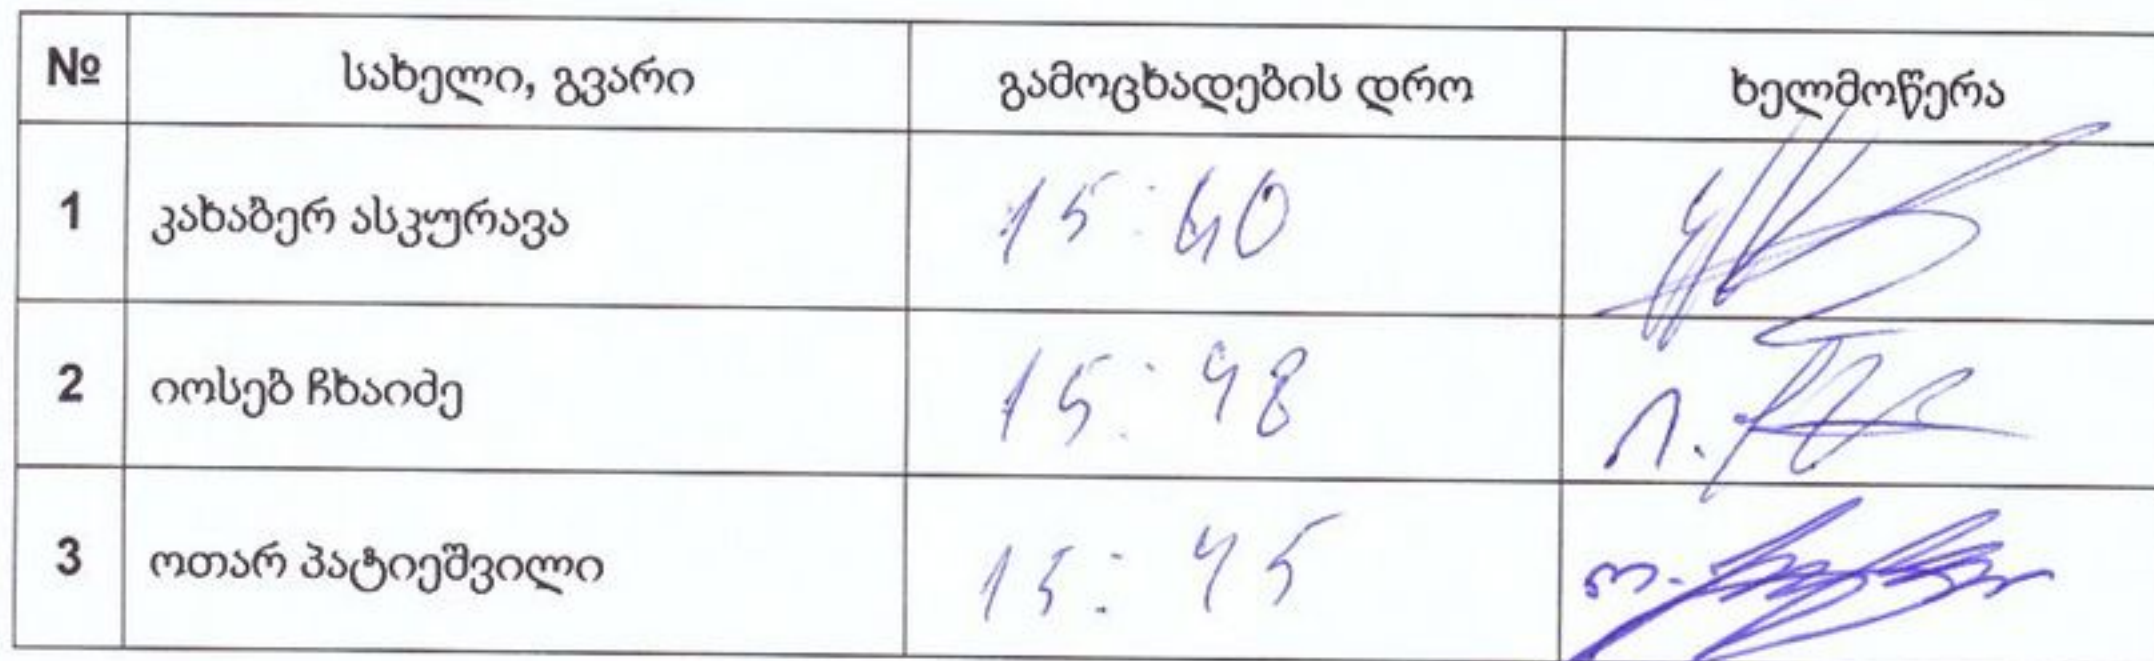 № სახელი, გვარი გამოცხადების დრო ხელმოწერა
1 კახაბერ ასკურავა 15:40
2 იოსებ ჩხაიძე 15:48
3 ოთარ პატიეშვილი 15:45